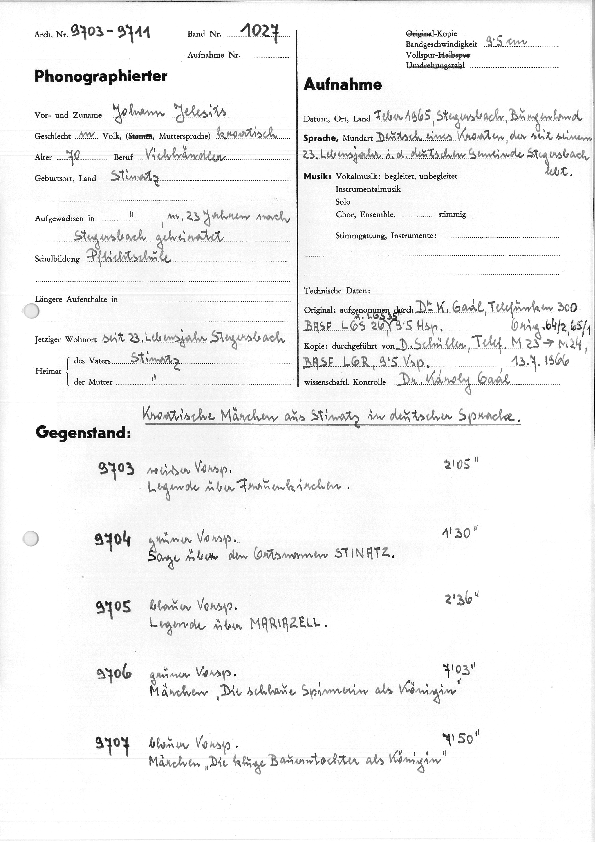 Arch. Nr. 9703-9711
Band Nr. 1027
Aufnahme Nr.
Original-Kopie
Bandgeschwindigkeit 9·5 cm
Vollspur-Halbspur
Umdrehungszahl
Phonographierter
Vor- und Zuname Johann Jelesits
Geschlecht m Volk, (Stamm, Muttersprache) kroatisch
Alter 70 Beruf Viehhändler
Geburtsort, Land Stinatz
Aufgewachsen in " , m. 23 Jahren nach
Stegersbach geheiratet
Schulbildung Pflichtschule
Längere Aufenthalte in
Jetziger Wohnort seit 23. Lebensjahr Stegersbach
Heimat
des Vaters Stinatz
der Mutter "
Aufnahme
Datum, Ort, Land Feber 1965, Stegersbach, Burgenland
Sprache, Mundart Deutsch eines Kroaten, der seit seinem
23. Lebensjahr i. d. deutschen Gemeinde Stegersbach
lebt.
Musik: Vokalmusik: begleitet, unbegleitet
Instrumentalmusik
Solo
Chor, Ensemble, stimmig
Stimmgattung, Instrumente:
Technische Daten:
Original: aufgenommen durch Dr K. Gaál, Telefunken 300
BASF LGS 26, 9·5 Hsp. Orig. 64/2, 65/1
Kopie: durchgeführt von D. Schüller, Telef. M 25 → M 24,
BASF LGR, 9·5 Vsp. 13.7.1966
wissenschaftl. Kontrolle Dr. Károly Gaál
Kroatische Märchen aus Stinatz in deutscher Sprache.
Gegenstand:
9703 weißer Vorsp. 2'05"
Legende über Frauenkirchen.
9704 grüner Vorsp. 1'30"
Sage über den Ortsnamen STINATZ.
9705 blauer Vorsp. 2'36"
Legende über MARIAZELL.
9706 grüner Vorsp. 7'03"
Märchen „Die schlaue Spinnerin als Königin"
9707 blauer Vorsp. 7'50"
Märchen „Die kluge Bauerntochter als Königin"